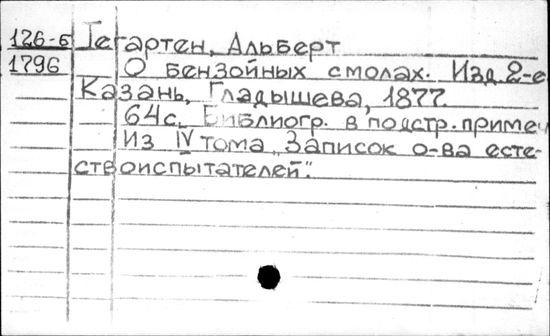 126-б Гегартен, Альберт
1796 О бензойных смолах. Изд. 2-е
Казань, Гладышева, 1877.
64с. Библиогр. в подстр. примеч
Из IV тома „Записок о-ва есте-
ствоиспытателей".